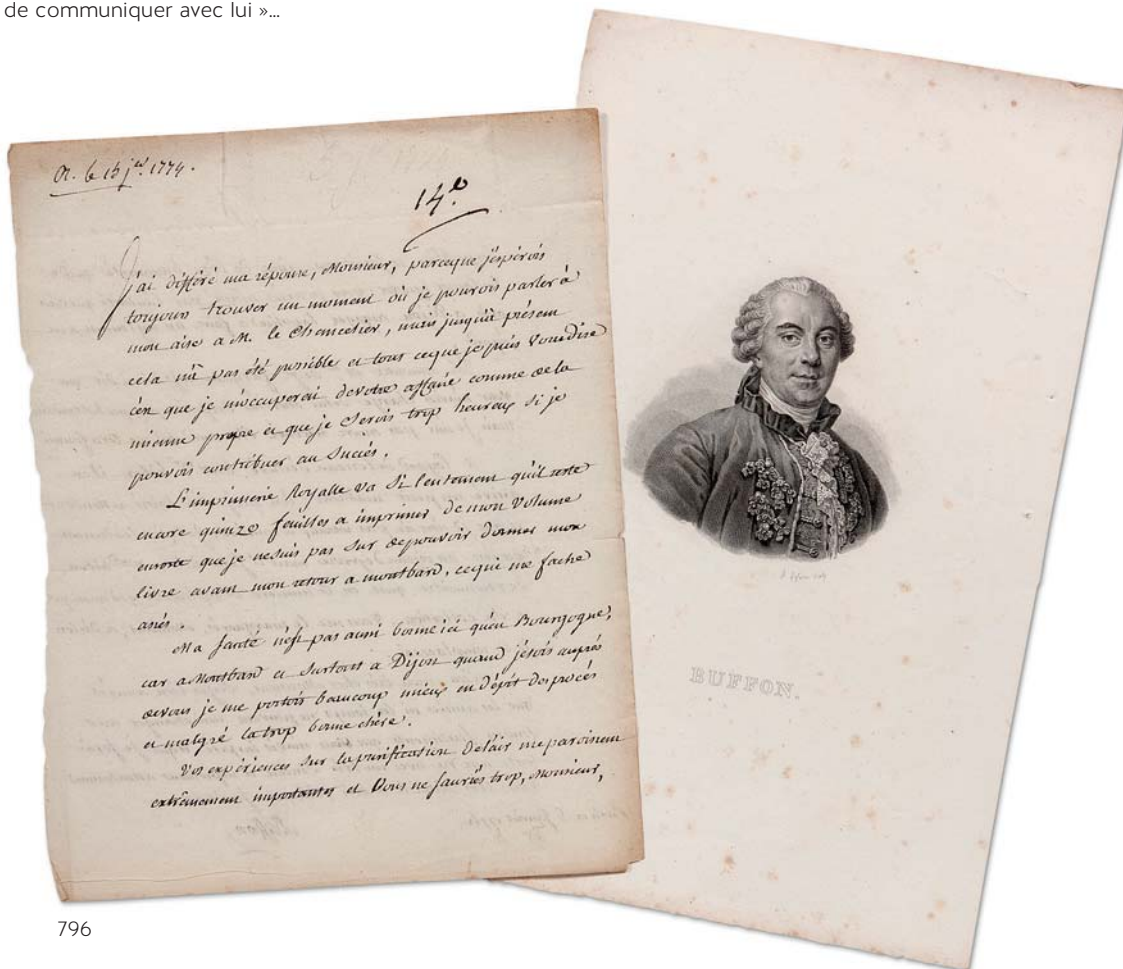 de communiquer avec lui »...
R. le 15 j.er 1774.
14.e
J'ai différé ma réponse, Monsieur, parceque j'espérois
toujours trouver un moment où je pourois parler à
mon aise a M. le Chancelier, mais jusqu'à présent
cela n'a pas été possible et tous ceque je puis vous dire
c'est que je m'occuperai devotre affaire comme dela
mienne propre et que je Serois trop heureux Si je
pouvois contribuer au Succès.
L'imprimerie Royalle va Si lentement qu'il reste
encore quinze feuilles a imprimer de mon Volume
ensorte que je nesuis pas Sur depouvoir donner mon
livre avant mon retour a montbard, cequi me fache
assés.
Ma Santé n'est pas aussi bonne ici qu'en Bourgogne,
car a Montbard et Surtout a Dijon quand j'étois auprès
devous je me portois beaucoup mieux en dépit des procès
et malgré la trop bonne chère.
Vos expériences Sur la purification delair me paroissent
extrêmement importantes et Vous ne Sauriés trop, Monsieur,
Buffon
BUFFON.
796